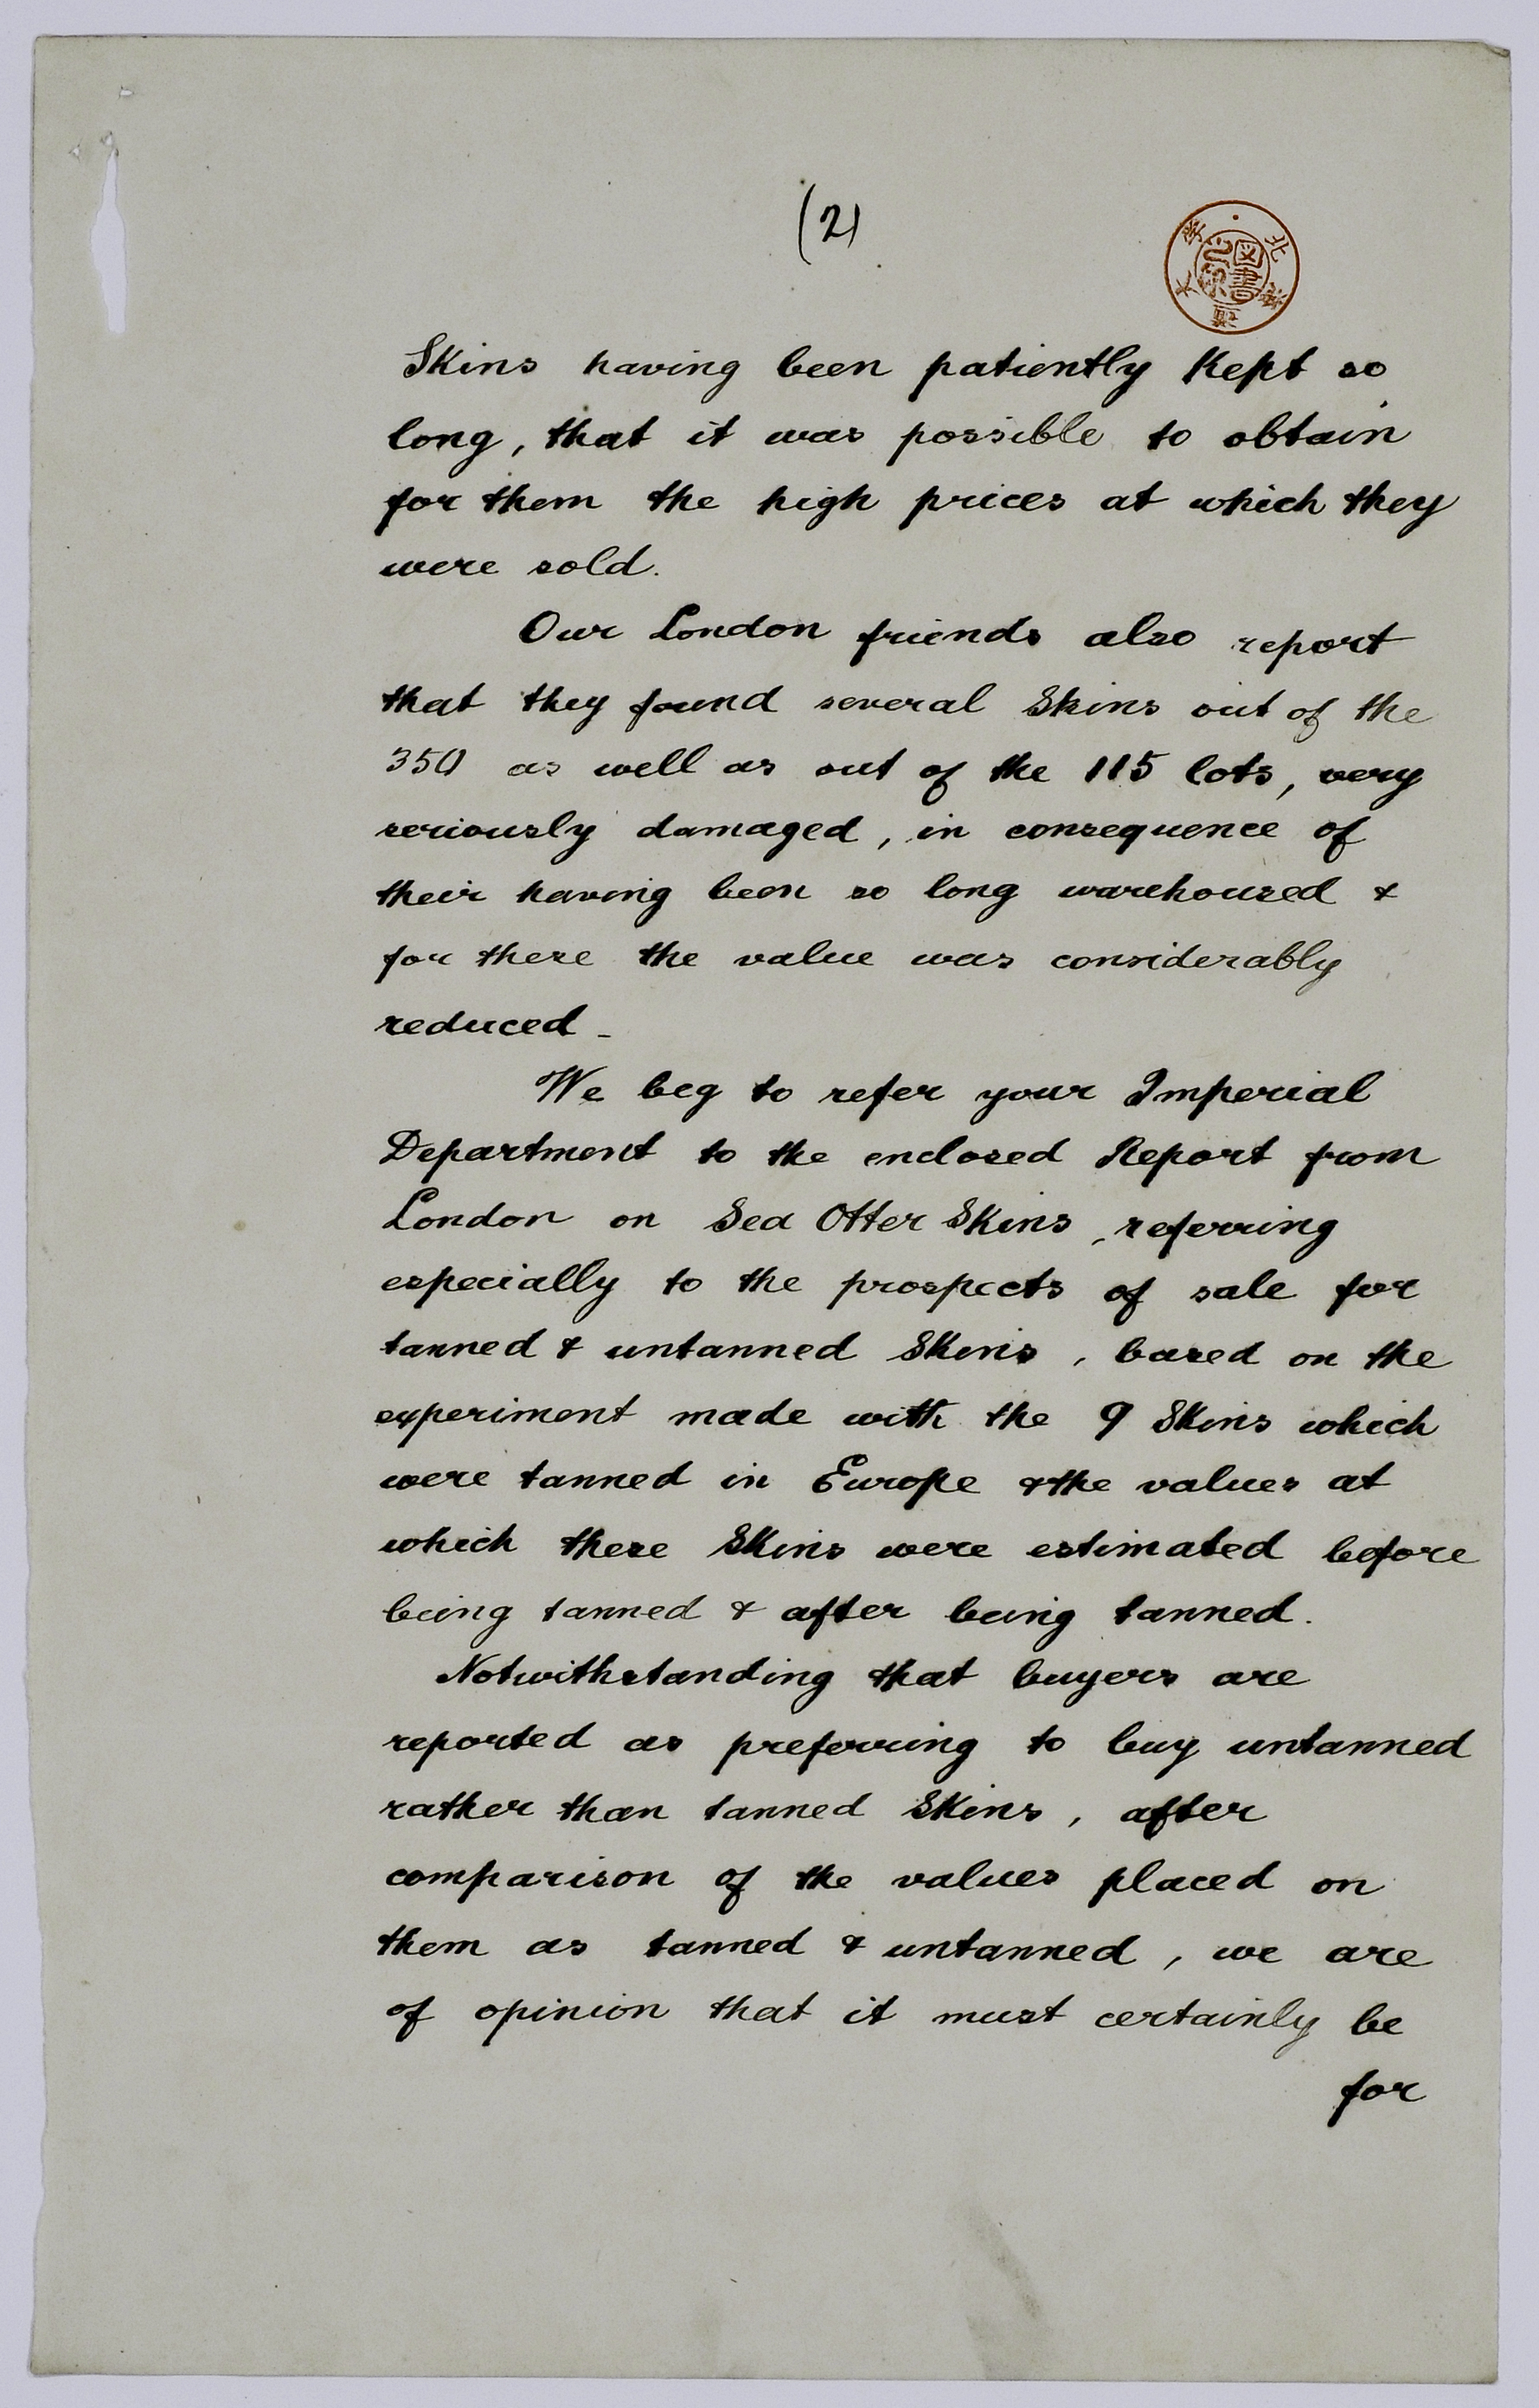 (2)
北海大学
図書
Skins having been patiently kept so
long, that it was possible to obtain
for them the high prices at which they
were sold.
Our London friends also report
that they found several Skins out of the
350 as well as out of the 115 lots, very
seriously damaged, in consequence of
their having been so long warehoused &
for these the value was considerably
reduced _
We beg to refer your Imperial
Department to the enclosed Report from
London on Sea Otter Skins, referring
especially to the prospects of sale for
tanned & untanned Skins, based on the
experiment made with the 9 Skins which
were tanned in Europe & the values at
which these Skins were estimated before
being tanned & after being tanned.
Notwithstanding that buyers are
reported as preferring to buy untanned
rather than tanned Skins, after
comparison of the values placed on
them as tanned & untanned, we are
of opinion that it must certainly be
for